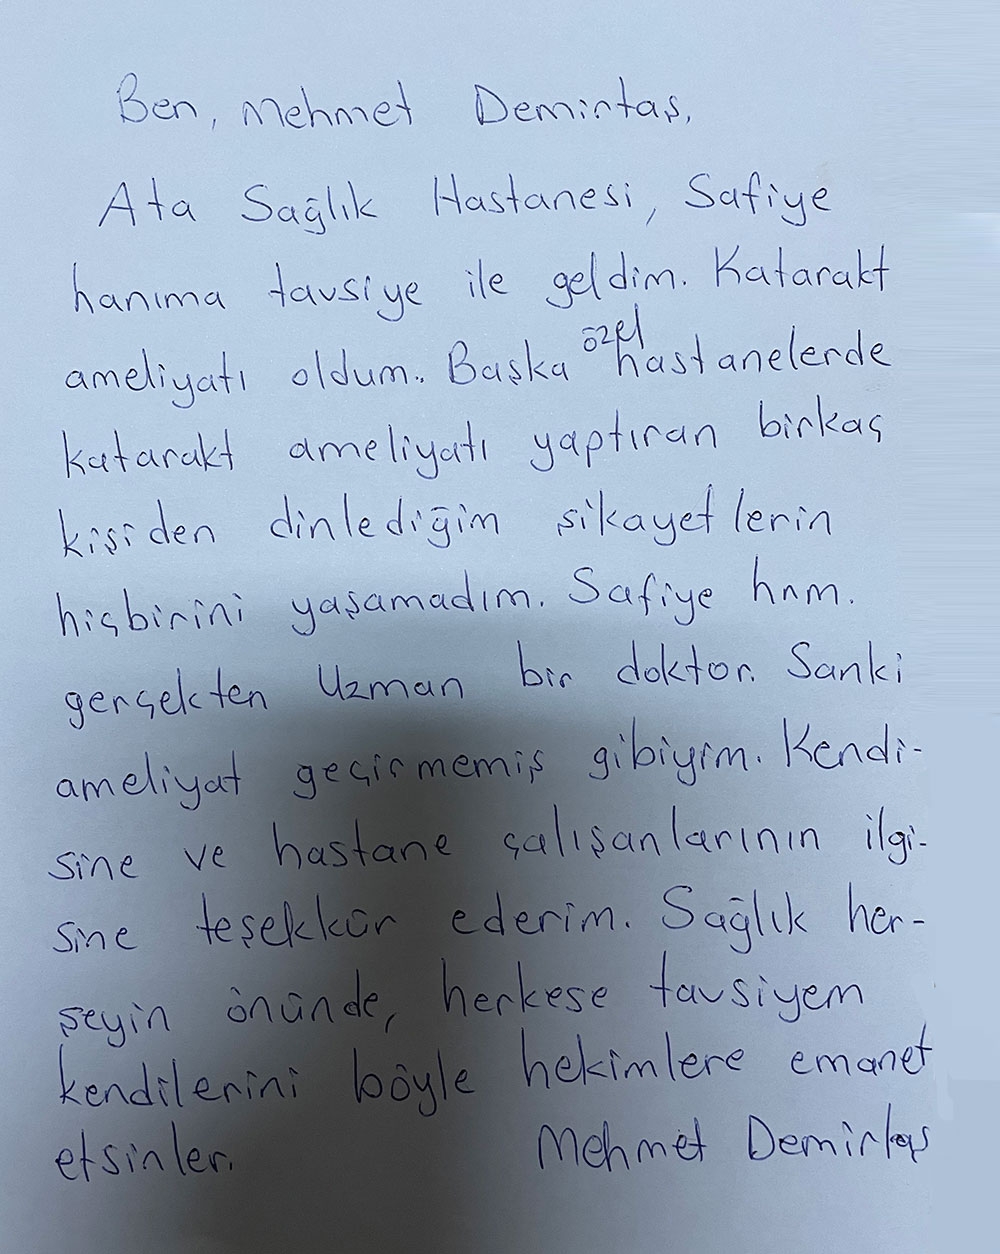 Ben, Mehmet Demirtaş,
Ata Sağlık Hastanesi, Safiye
hanıma tavsiye ile geldim. Katarakt
ameliyatı oldum. Başka özel hastanelerde
katarakt ameliyatı yaptıran birkaç
kişiden dinlediğim şikayetlerin
hiçbirini yaşamadım. Safiye hnm.
gerçekten Uzman bir doktor. Sanki
ameliyat geçirmemiş gibiyim. Kendi-
sine ve hastane çalışanlarının ilgi-
sine teşekkür ederim. Sağlık her-
şeyin önünde, herkese tavsiyem
kendilerini böyle hekimlere emanet
etsinler. Mehmet Demirtaş